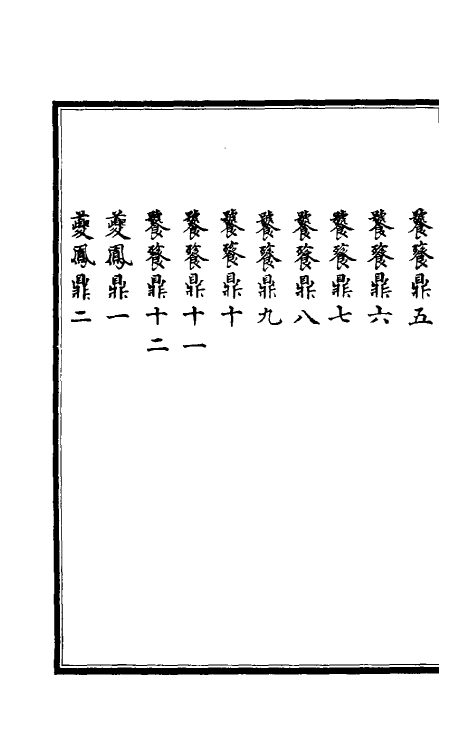 饕餮鼎五
饕餮鼎六
饕餮鼎七
饕餮鼎八
饕餮鼎九
饕餮鼎十
饕餮鼎十一
饕餮鼎十二
夔鳳鼎一
夔鳳鼎二